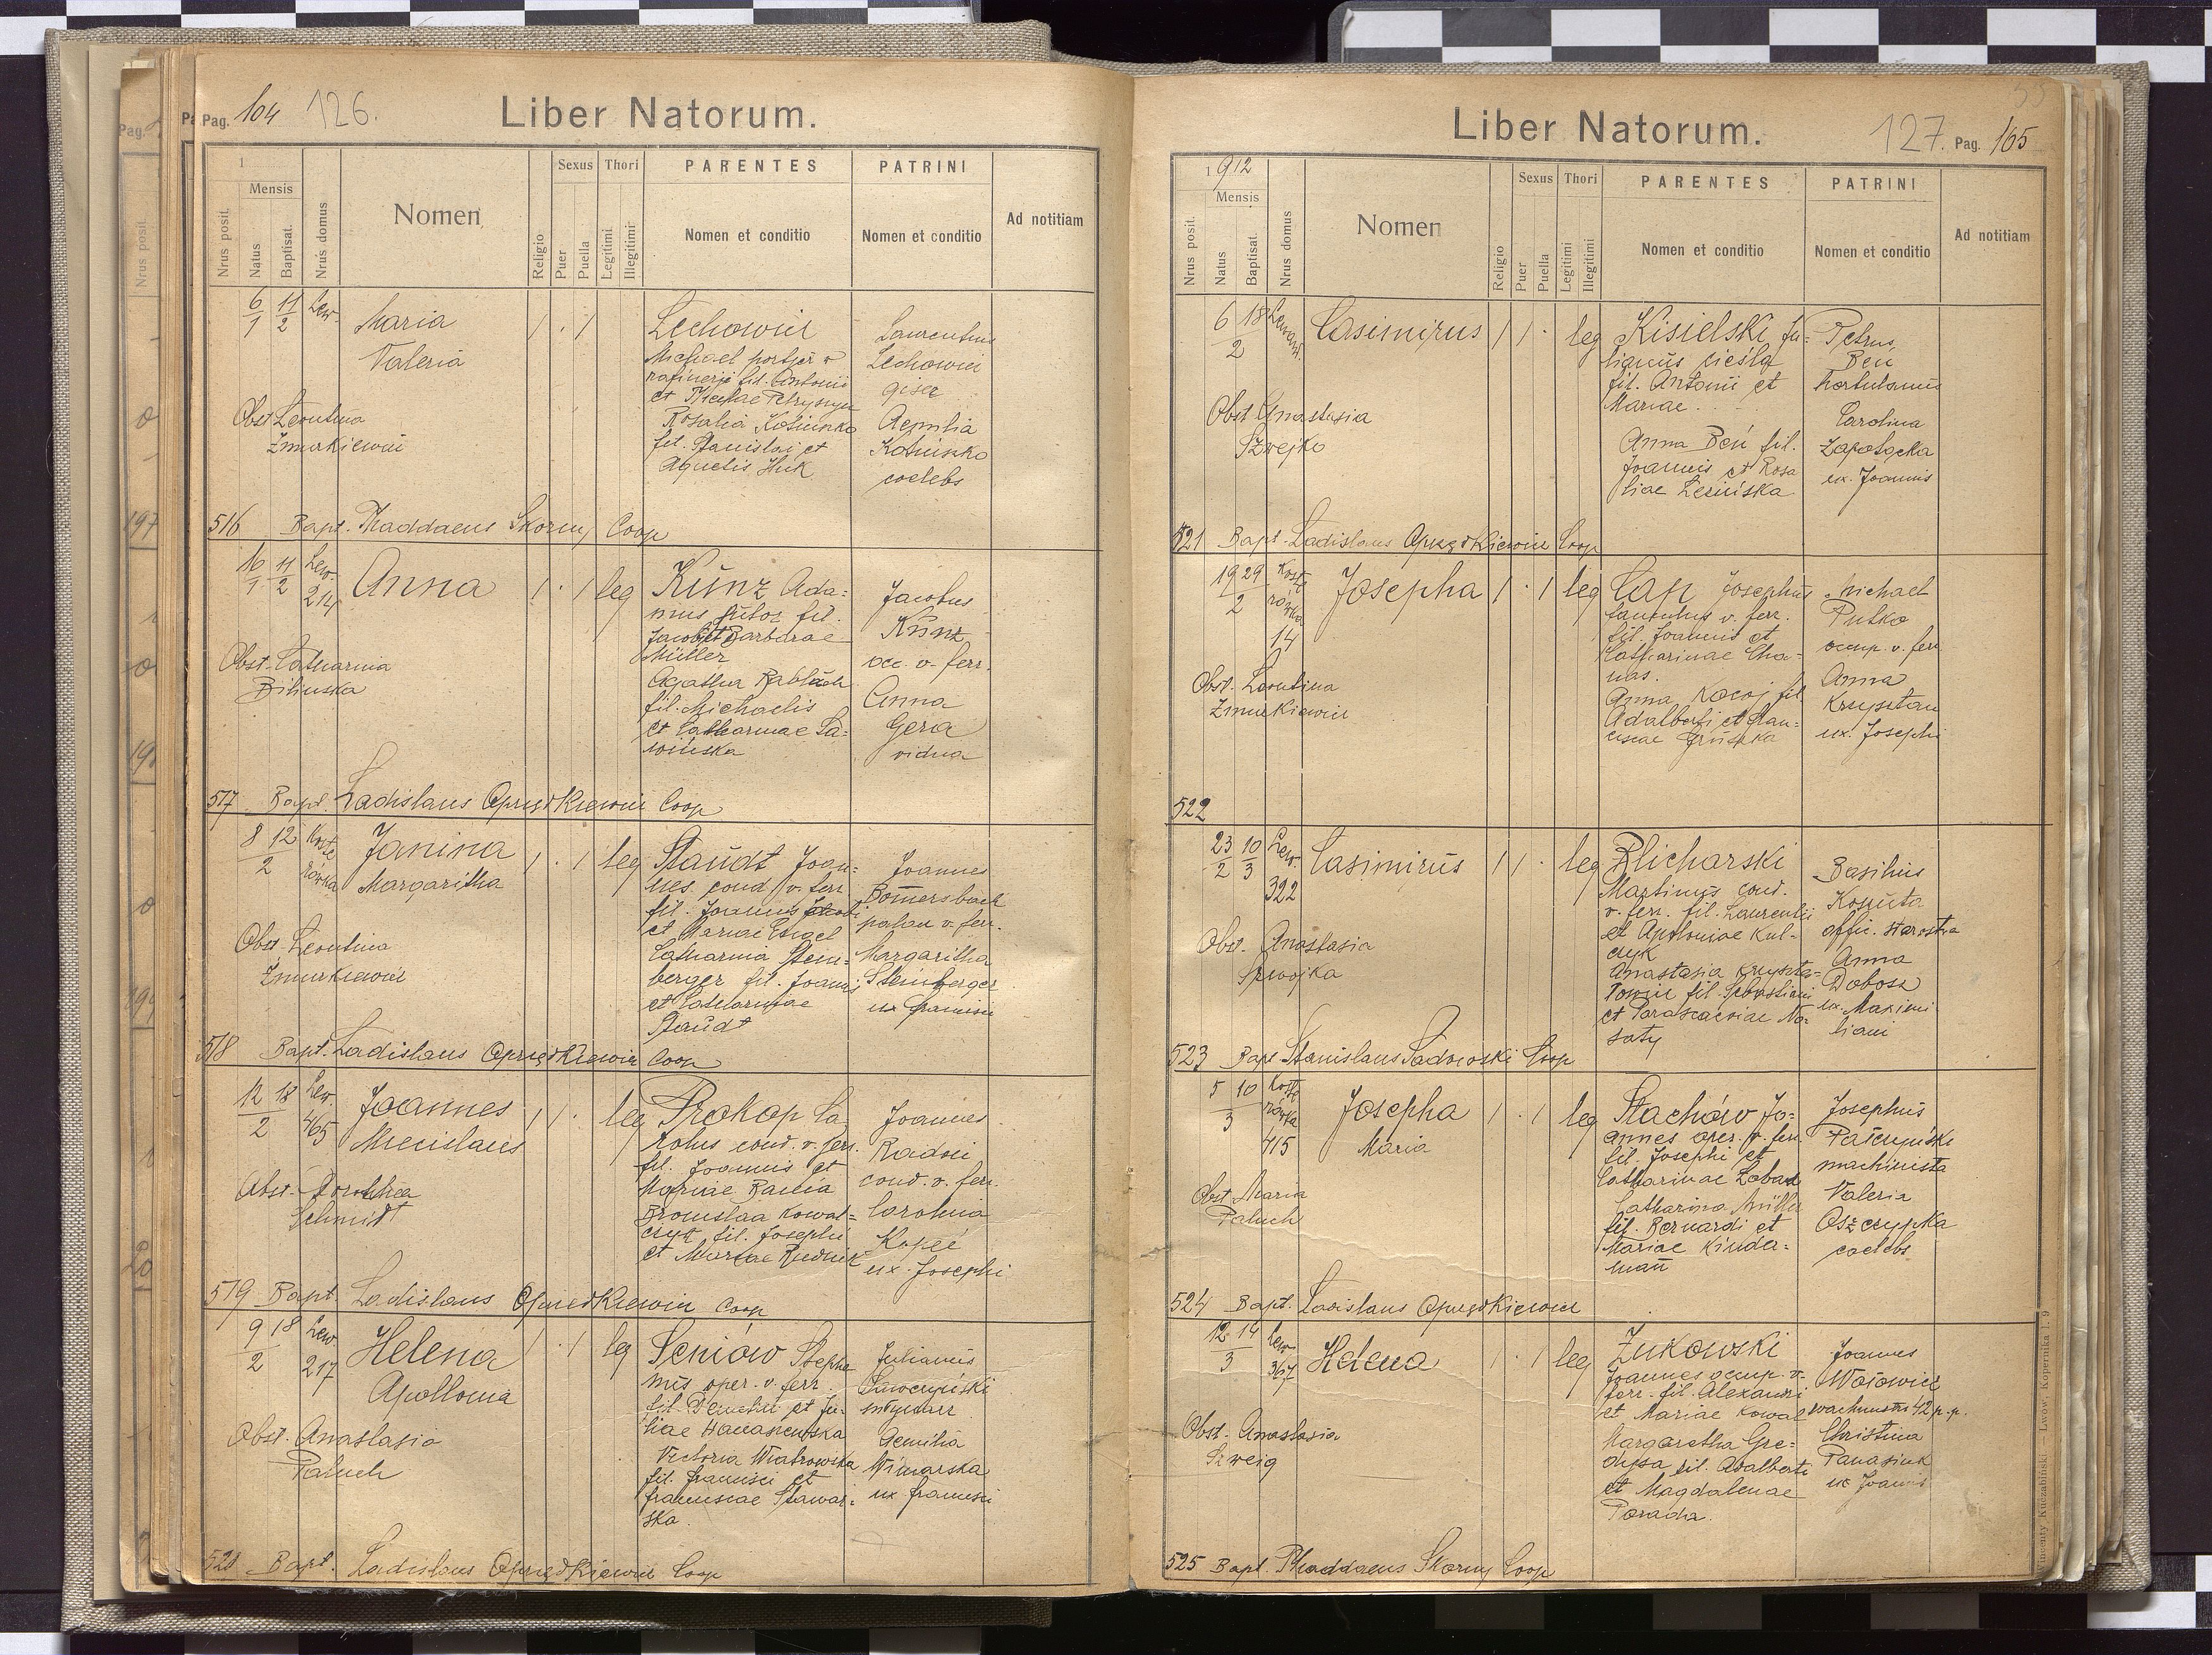 Pag. 104 126. Liber Natorum.
1
Mensis
Nrus posit.
Natus
Baptisat.
Nrus domus
Nomen
Religio
Sexus
Puer
Puella
Thori
Legitimi
Illegitimi
PARENTES
Nomen et conditio
PATRINI
Nomen et conditio
Ad notitiam
6/1 11/2 Lew.
Maria
Valeria
Obst. Leontina
Żmurkiewicz
Lechowicz
Michael portjer v
rafinerji fil. Antonii
Rosalia
fil. Stanislai et
Agnetis Huk
Laurentius
Lechowicz
Aemilia
coelebs
516 Bapt. Thaddaeus Skorny Coop
16/1 11/2 Lew. 214
Anna
1 · 1 leg
Obst. Catharina
Bilinska
Kunz Ada=
mus sutor fil.
Jacobi et Barbarae
Müller
Agatha
fil. Michaelis
et Catharinae Sa=
wińska
Jacobus
Kunz
occ. v. ferr.
Anna
Gera
vidua
517 Bapt. Ladislaus Oprzędkiewicz Coop
8 12/2 Koste
rówka
Janina
Margaritha
1 · 1 leg
Obst. Leontina
Żmurkiewicz
Staudt Joan=
nes cond. v. ferr
fil. Joannis
et Mariae Engel
Catharina Stein=
berger fil. Joannis
et Catharinae
Staudt
Joannes
Bomersbach
v. ferr.
Margaritha
Steinberger
ux
518 Bapt. Ladislaus Oprzędkiewicz Coop
12 18/2 Lew. 465
Joannes
Miecislaus
1 1 · leg
Obst. Dorothea
Schmidt
Prokop Ca
rolus cond. v. ferr.
fil. Joannis et
Mariae
Bronislaa Kowal=
czyk fil. Josephi
et Mariae Rudnik
Joannes
Radoń
cond. v. ferr.
Carolina
Kopeć
ux. Josephi
519 Bapt Ladislaus Oprzędkiewicz Coop
9 18/2 Lew. 217
Helena
Apollonia
1 · 1 leg
Obst. Anastasia
Paluch
Seniów Stepha
nus oper. v. ferr.
fil. Demetrii et Ju=
liae
Victoria Wiatrowska
fil. Francisci et
Franciscae Stawar=
ska
Julianus
Ławczyński
Aemilia
Winiarska
ux Francisci
520 Bapt. Ladislaus Oprzędkiewicz Coop
Liber Natorum. 127. Pag. 105
1912
Mensis
Nrus posit.
Natus
Baptisat.
Nrus domus
Nomen
Religio
Sexus
Puer
Puella
Thori
Legitimi
Illegitimi
PARENTES
Nomen et conditio
PATRINI
Nomen et conditio
Ad notitiam
6 18/2 Lewand.
Casimirus
1 1 · leg
Obst. Anastasia
Szwejko
Kisielski Ju=
lianus cieśla
fil. Antonii et
Mariae
Anna Beń fil.
Joannis et Rosa
liae
Petrus
Beń
hortulanus
Carolina
Zapotocka
ux. Joannis
521 Bapt. Ladislaus Oprzędkiewicz Coop
19 29/2 Koste
rówka
14
Josepha
1 · 1 leg
Obst. Leontina
Żmurkiewicz
Cap Josephus
famulus v. ferr.
fil. Joannis et
Catharinae Cha=
nas.
Anna Kocaj fil
Adalberti et Fran=
ciscae Gruszka
Michael
Putko
occup. v. ferr
Anna
Krzysztan
ux. Josephi
522
23/2 10/3 Lew. 322
Casimirus
1 1 · leg
Obst. Anastasia
Szwojka
Blicharski
Martinus cond.
v. ferr. fil. Laurentii
et Apoloniae Kul=
czyk
Anastasia Kryszta=
lowicz fil. Sebastiani
et Parasceviae No=
saty
Basilius
Koszuta
offic. starostwa
Anna
Dobosz
ux. Maximi
liani
523 Bapt Stanislaus Sadowski Coop
5 10/3 Koste
rówka
415
Josepha
Maria
1 · 1 leg
Obst Maria
Paluch
Stachów Jo=
annes oper. v. ferr.
fil. Josephi et
Catharinae
Catharina Müller
fil. Bernardi et
Mariae Kinde=
mann
Josephus
machinista
Valeria
Oszczypka
coelebs
524 Bapt. Ladislaus Oprzędkiewicz
12 14/3 Lew 367
Helena
1 · 1 leg
Obst. Anastasia
Szweig
Żukowski
Joannes occup. v.
ferr. fil. Alexandri
et Mariae Kowal
Margaretha Gre=
fil. Adalberti
et Magdalenae
Porada.
Joannes
Watowicz
wachmistr 42 p.p.
Christina
Panasiuk
ux Joannis
525 Bapt. Thaddaeus Skorny Coop
Wincenty Kuczabiński — Lwów, Kopernika l. 9